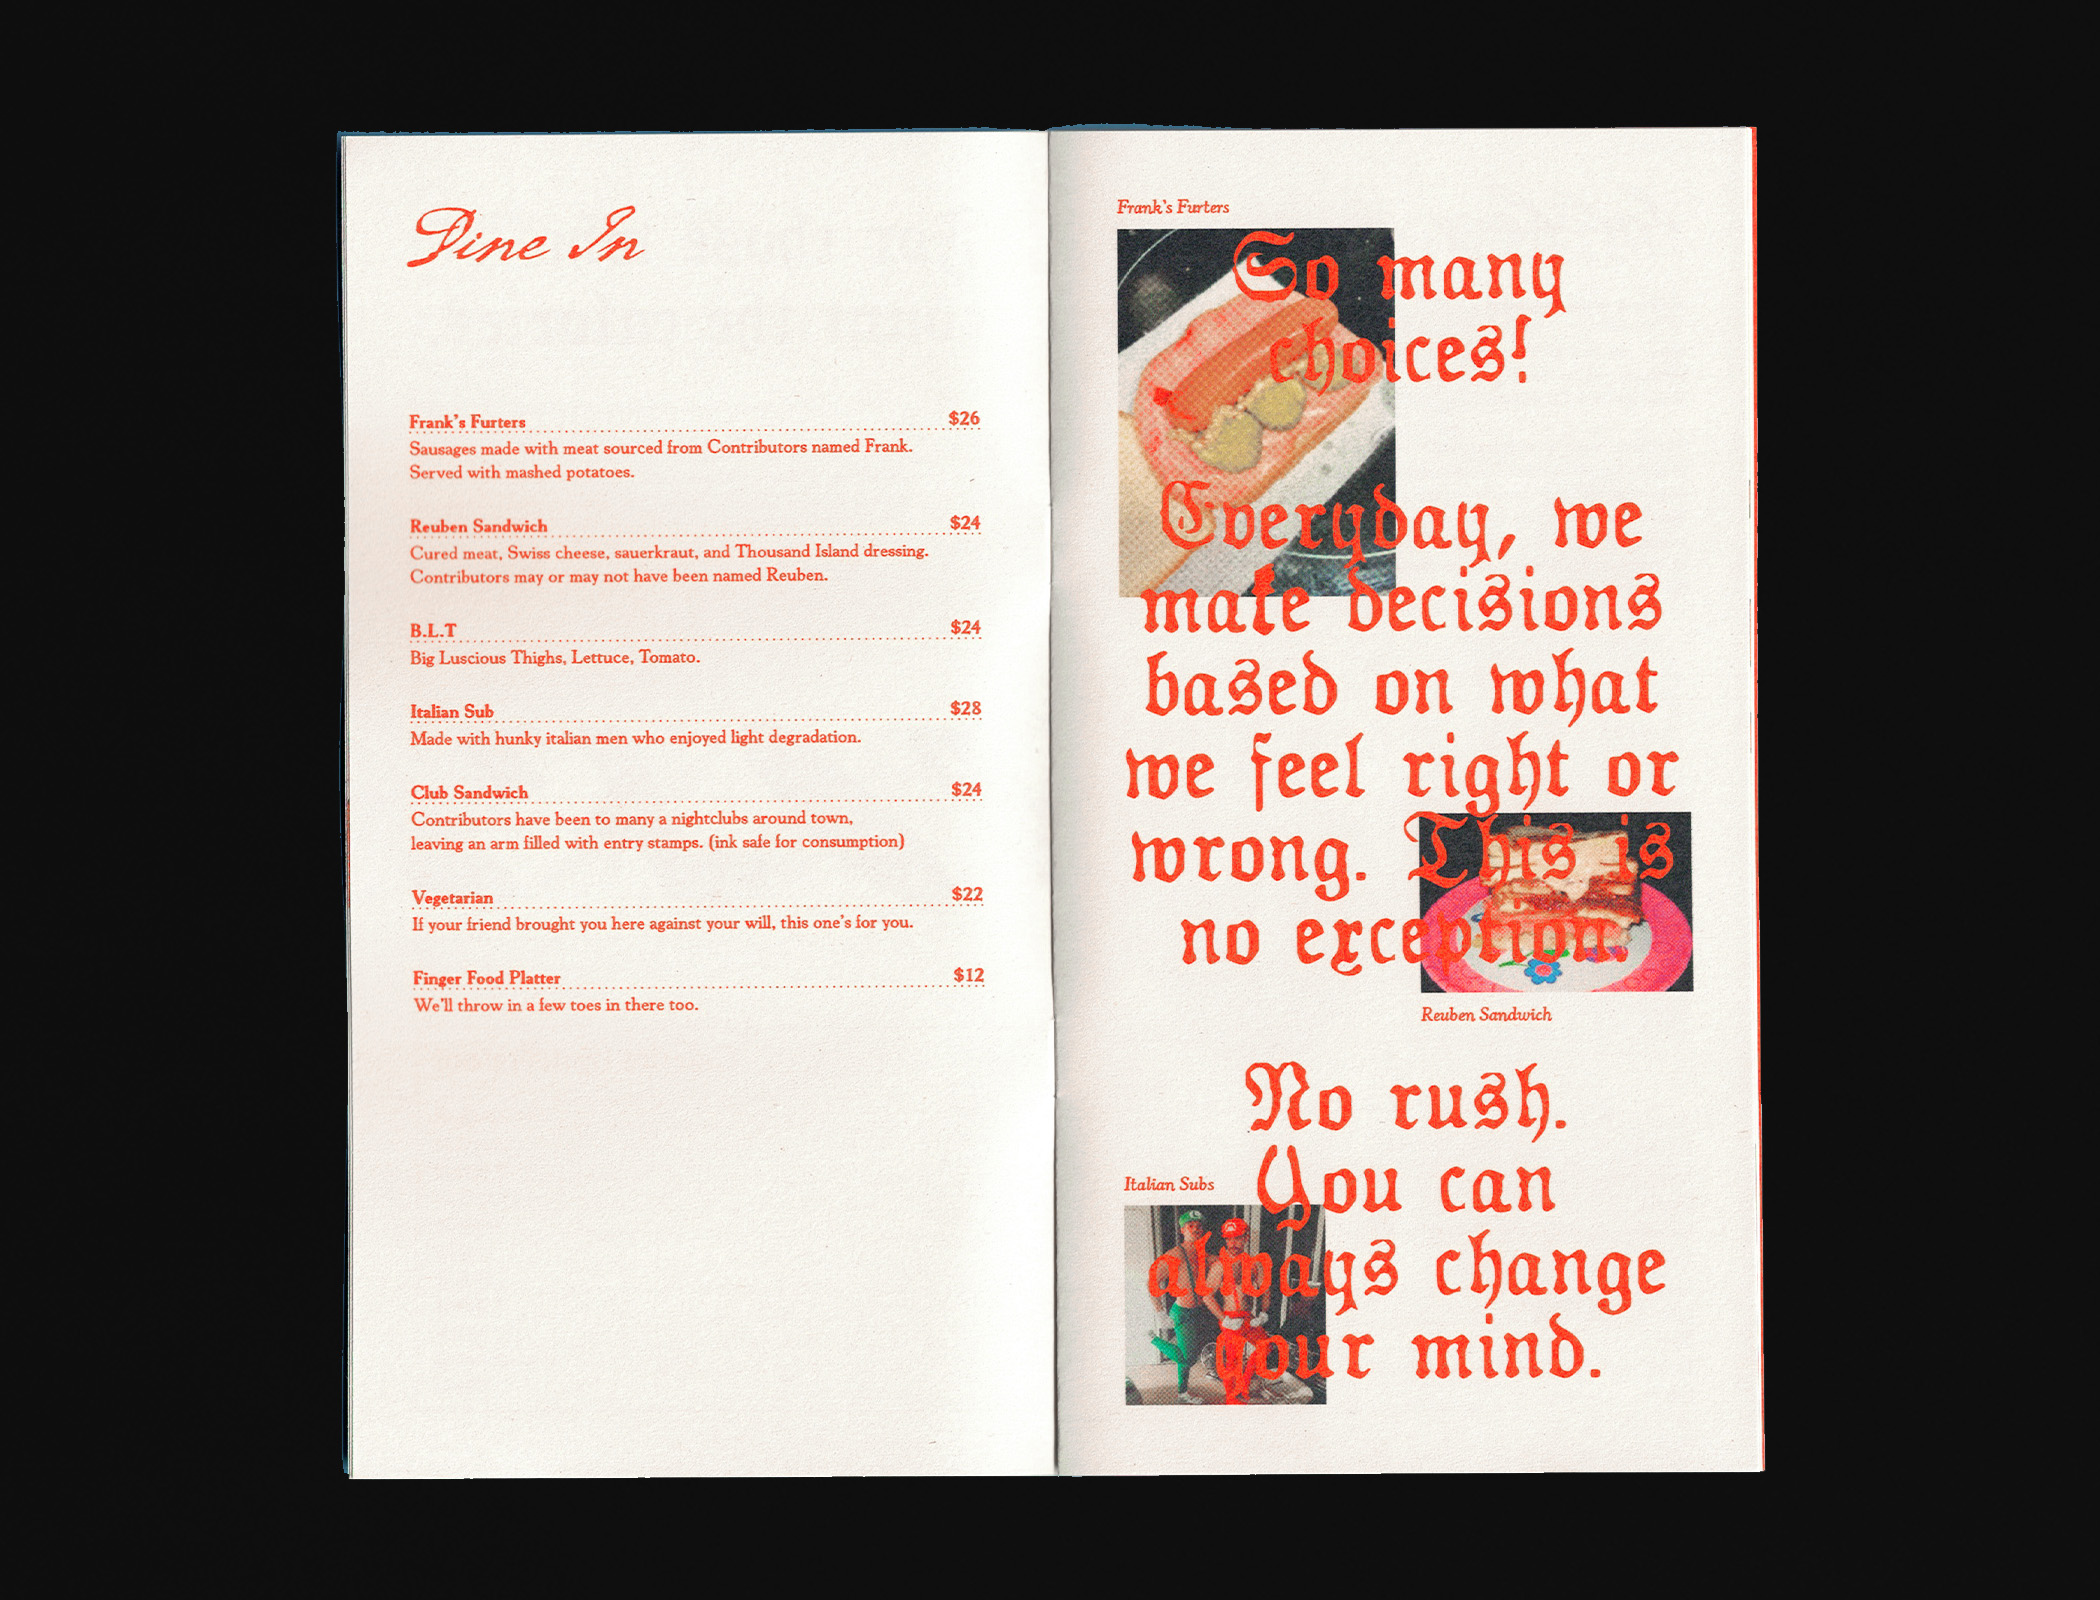 Dine In
Frank's Furters $26
Sausages made with meat sourced from Contributors named Frank.
Served with mashed potatoes.
Reuben Sandwich $24
Cured meat, Swiss cheese, sauerkraut, and Thousand Island dressing.
Contributors may or may not have been named Reuben.
B.L.T $24
Big Luscious Thighs, Lettuce, Tomato.
Italian Sub $28
Made with hunky italian men who enjoyed light degradation.
Club Sandwich $24
Contributors have been to many a nightclubs around town,
leaving an arm filled with entry stamps. (ink safe for consumption)
Vegetarian $22
If your friend brought you here against your will, this one's for you.
Finger Food Platter $12
We'll throw in a few toes in there too.
Frank's Furters
So many
choices!
Everyday, we
make decisions
based on what
we feel right or
wrong. This is
no exception.
Reuben Sandwich
No rush.
You can
always change
your mind.
Italian Subs